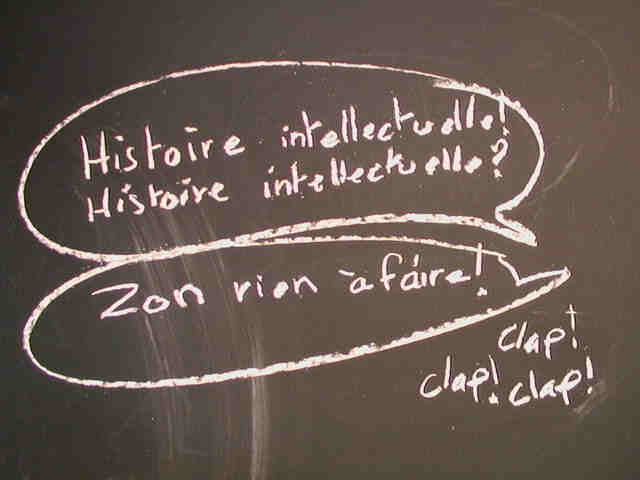 Histoire intellectuelle!
Histoire intellectuelle?
Zon rien à faire!
clap!
clap! clap!